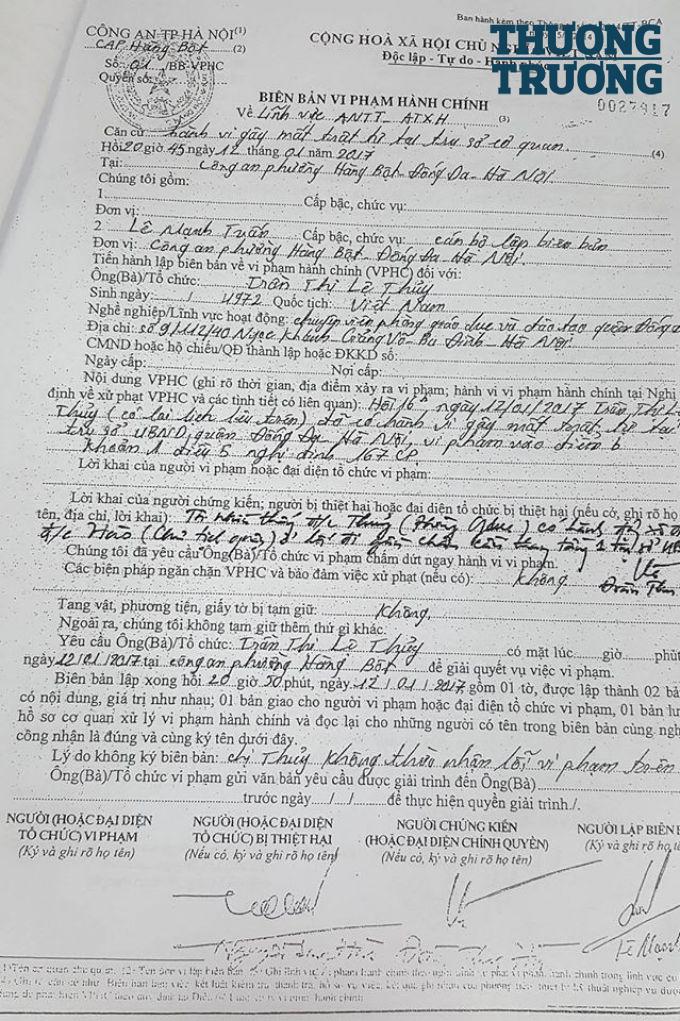 THƯƠNG
TRƯỜNG
Ban hành kèm theo
CÔNG AN TP HÀ NỘI(1)
CAP Hàng Bột (2)
Số: 01 /BB-VPHC
Quyển số:
CỘNG HOÀ XÃ HỘI CHỦ NGHĨA VIỆT NAM
Độc lập - Tự do - Hạnh phúc
0027917
BIÊN BẢN VI PHẠM HÀNH CHÍNH
Về Lĩnh vực ANTT - ATXH (3)
Căn cứ: hành vi gây mất trật tự tại trụ sở cơ quan. (4)
Hồi 20 giờ 45 ngày 12 tháng 01 năm 2017
Tại: Công an phường Hàng Bột - Đống Đa - Hà Nội.
Chúng tôi gồm:
1. Cấp bậc, chức vụ:
Đơn vị:
2 Lê Mạnh Tuấn Cấp bậc, chức vụ: cán bộ lập biên bản
Đơn vị: Công an phường Hàng Bột - Đống Đa - Hà Nội.
Tiến hành lập biên bản về vi phạm hành chính (VPHC) đối với:
Ông(Bà)/Tổ chức: Trần Thị Lệ Thủy
Sinh ngày: / 1972 Quốc tịch: Việt Nam
Nghề nghiệp/Lĩnh vực hoạt động: chuyên viên phòng giáo dục và đào tạo quận Đống Đa
Địa chỉ: số 9/112/40 Ngọc Khánh - Giảng Võ - Ba Đình - Hà Nội.
CMND hoặc hộ chiếu/QĐ thành lập hoặc ĐKKD số:
Ngày cấp: Nơi cấp:
Nội dung VPHC (ghi rõ thời gian, địa điểm xảy ra vi phạm; hành vi vi phạm hành chính tại Nghị
định về xử phạt VPHC và các tình tiết có liên quan): Hồi 16h, ngày 12/01/2017 Trần Thị Lệ
Thủy (có lai lịch nêu trên) đã có hành vi gây mất trật tự tại
trụ sở UBND quận Đống Đa - Hà Nội, vi phạm vào điểm b
khoản 1 điều 5 nghị định 167 CP.
Lời khai của người vi phạm hoặc đại diện tổ chức vi phạm:
Lời khai của người chứng kiến; người bị thiệt hại hoặc đại diện tổ chức bị thiệt hại (nếu có, ghi rõ họ
tên, địa chỉ, lời khai): Tôi nhìn thấy đ/c Thủy (Phòng Gduc) có hành
đ/c Hào (Chủ tịch quận) lối đi cầu thang tầng 1
Chúng tôi đã yêu cầu Ông(Bà)/Tổ chức vi phạm chấm dứt ngay hành vi vi phạm.
Các biện pháp ngăn chặn VPHC và bảo đảm việc xử phạt (nếu có): Không
Tang vật, phương tiện, giấy tờ bị tạm giữ: Không.
Ngoài ra, chúng tôi không tạm giữ thêm thứ gì khác.
Yêu cầu Ông(Bà)/Tổ chức: Trần Thị Lệ Thủy có mặt lúc giờ phút
ngày 12/01/2017 tại công an phường Hàng Bột để giải quyết vụ việc vi phạm.
Biên bản lập xong hồi 20 giờ 50 phút, ngày 12/01/2017 gồm 01 tờ, được lập thành 02 bản
có nội dung, giá trị như nhau; 01 bản giao cho người vi phạm hoặc đại diện tổ chức vi phạm, 01 bản lưu
hồ sơ cơ quan xử lý vi phạm hành chính và đọc lại cho những người có tên trong biên bản cùng nghe
công nhận là đúng và cùng ký tên dưới đây.
Lý do không ký biên bản: chị Thủy không thừa nhận lỗi vi phạm trên
Ông(Bà)/Tổ chức vi phạm gửi văn bản yêu cầu được giải trình đến Ông(Bà)
trước ngày / / để thực hiện quyền giải trình./.
NGƯỜI (HOẶC ĐẠI DIỆN NGƯỜI (HOẶC ĐẠI DIỆN NGƯỜI CHỨNG KIẾN NGƯỜI LẬP BIÊN B
TỔ CHỨC) VI PHẠM TỔ CHỨC) BỊ THIỆT HẠI (HOẶC ĐẠI DIỆN CHÍNH QUYỀN) (Ký và ghi rõ họ tên)
(Ký và ghi rõ họ tên) (Nếu có, ký và ghi rõ họ tên) (Nếu có, ký và ghi rõ họ tên)
Lê Mạnh